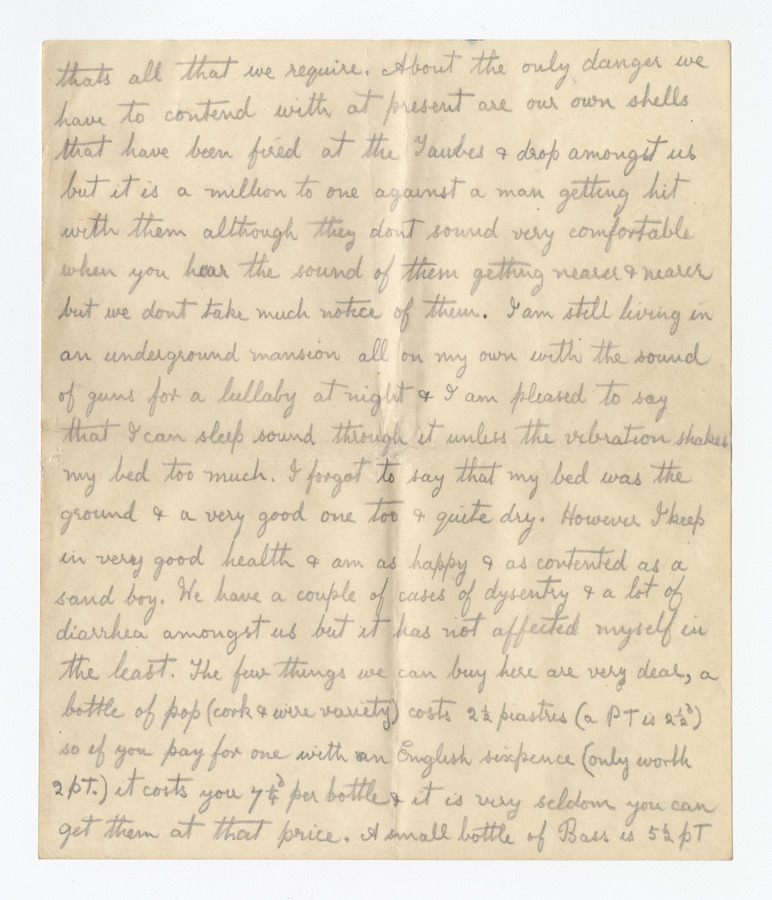 thats all that we require. About the only danger we
have to contend with at present are our own shells
that have been fired at the Taubes & drop amongst us
but it is a million to one against a man getting hit
with them although they dont sound very comfortable
when you hear the sound of them getting nearer & nearer
but we dont take much notice of them. I am still living in
an underground mansion all on my own with the sound
of guns for a lullaby at night & I am pleased to say
that I can sleep sound through it unless the vibration shakes
my bed too much. I forgot to say that my bed was the
ground & a very good one too & quite dry. However I keep
in very good health & am as happy & as contented as a
sand boy. We have a couple of cases of dysentry & a lot of
diarrhea amongst us but it has not affected myself in
the least. The few things we can buy here are very dear, a
bottle of pop (cork & wire variety) costs 2½ piastres (a PT is 2½d)
so if you pay for one with an English sixpence (only worth
2 PT.) it costs you 7¼d per bottle & it is very seldom you can
get them at that price. A small bottle of Bass is 5½ PT